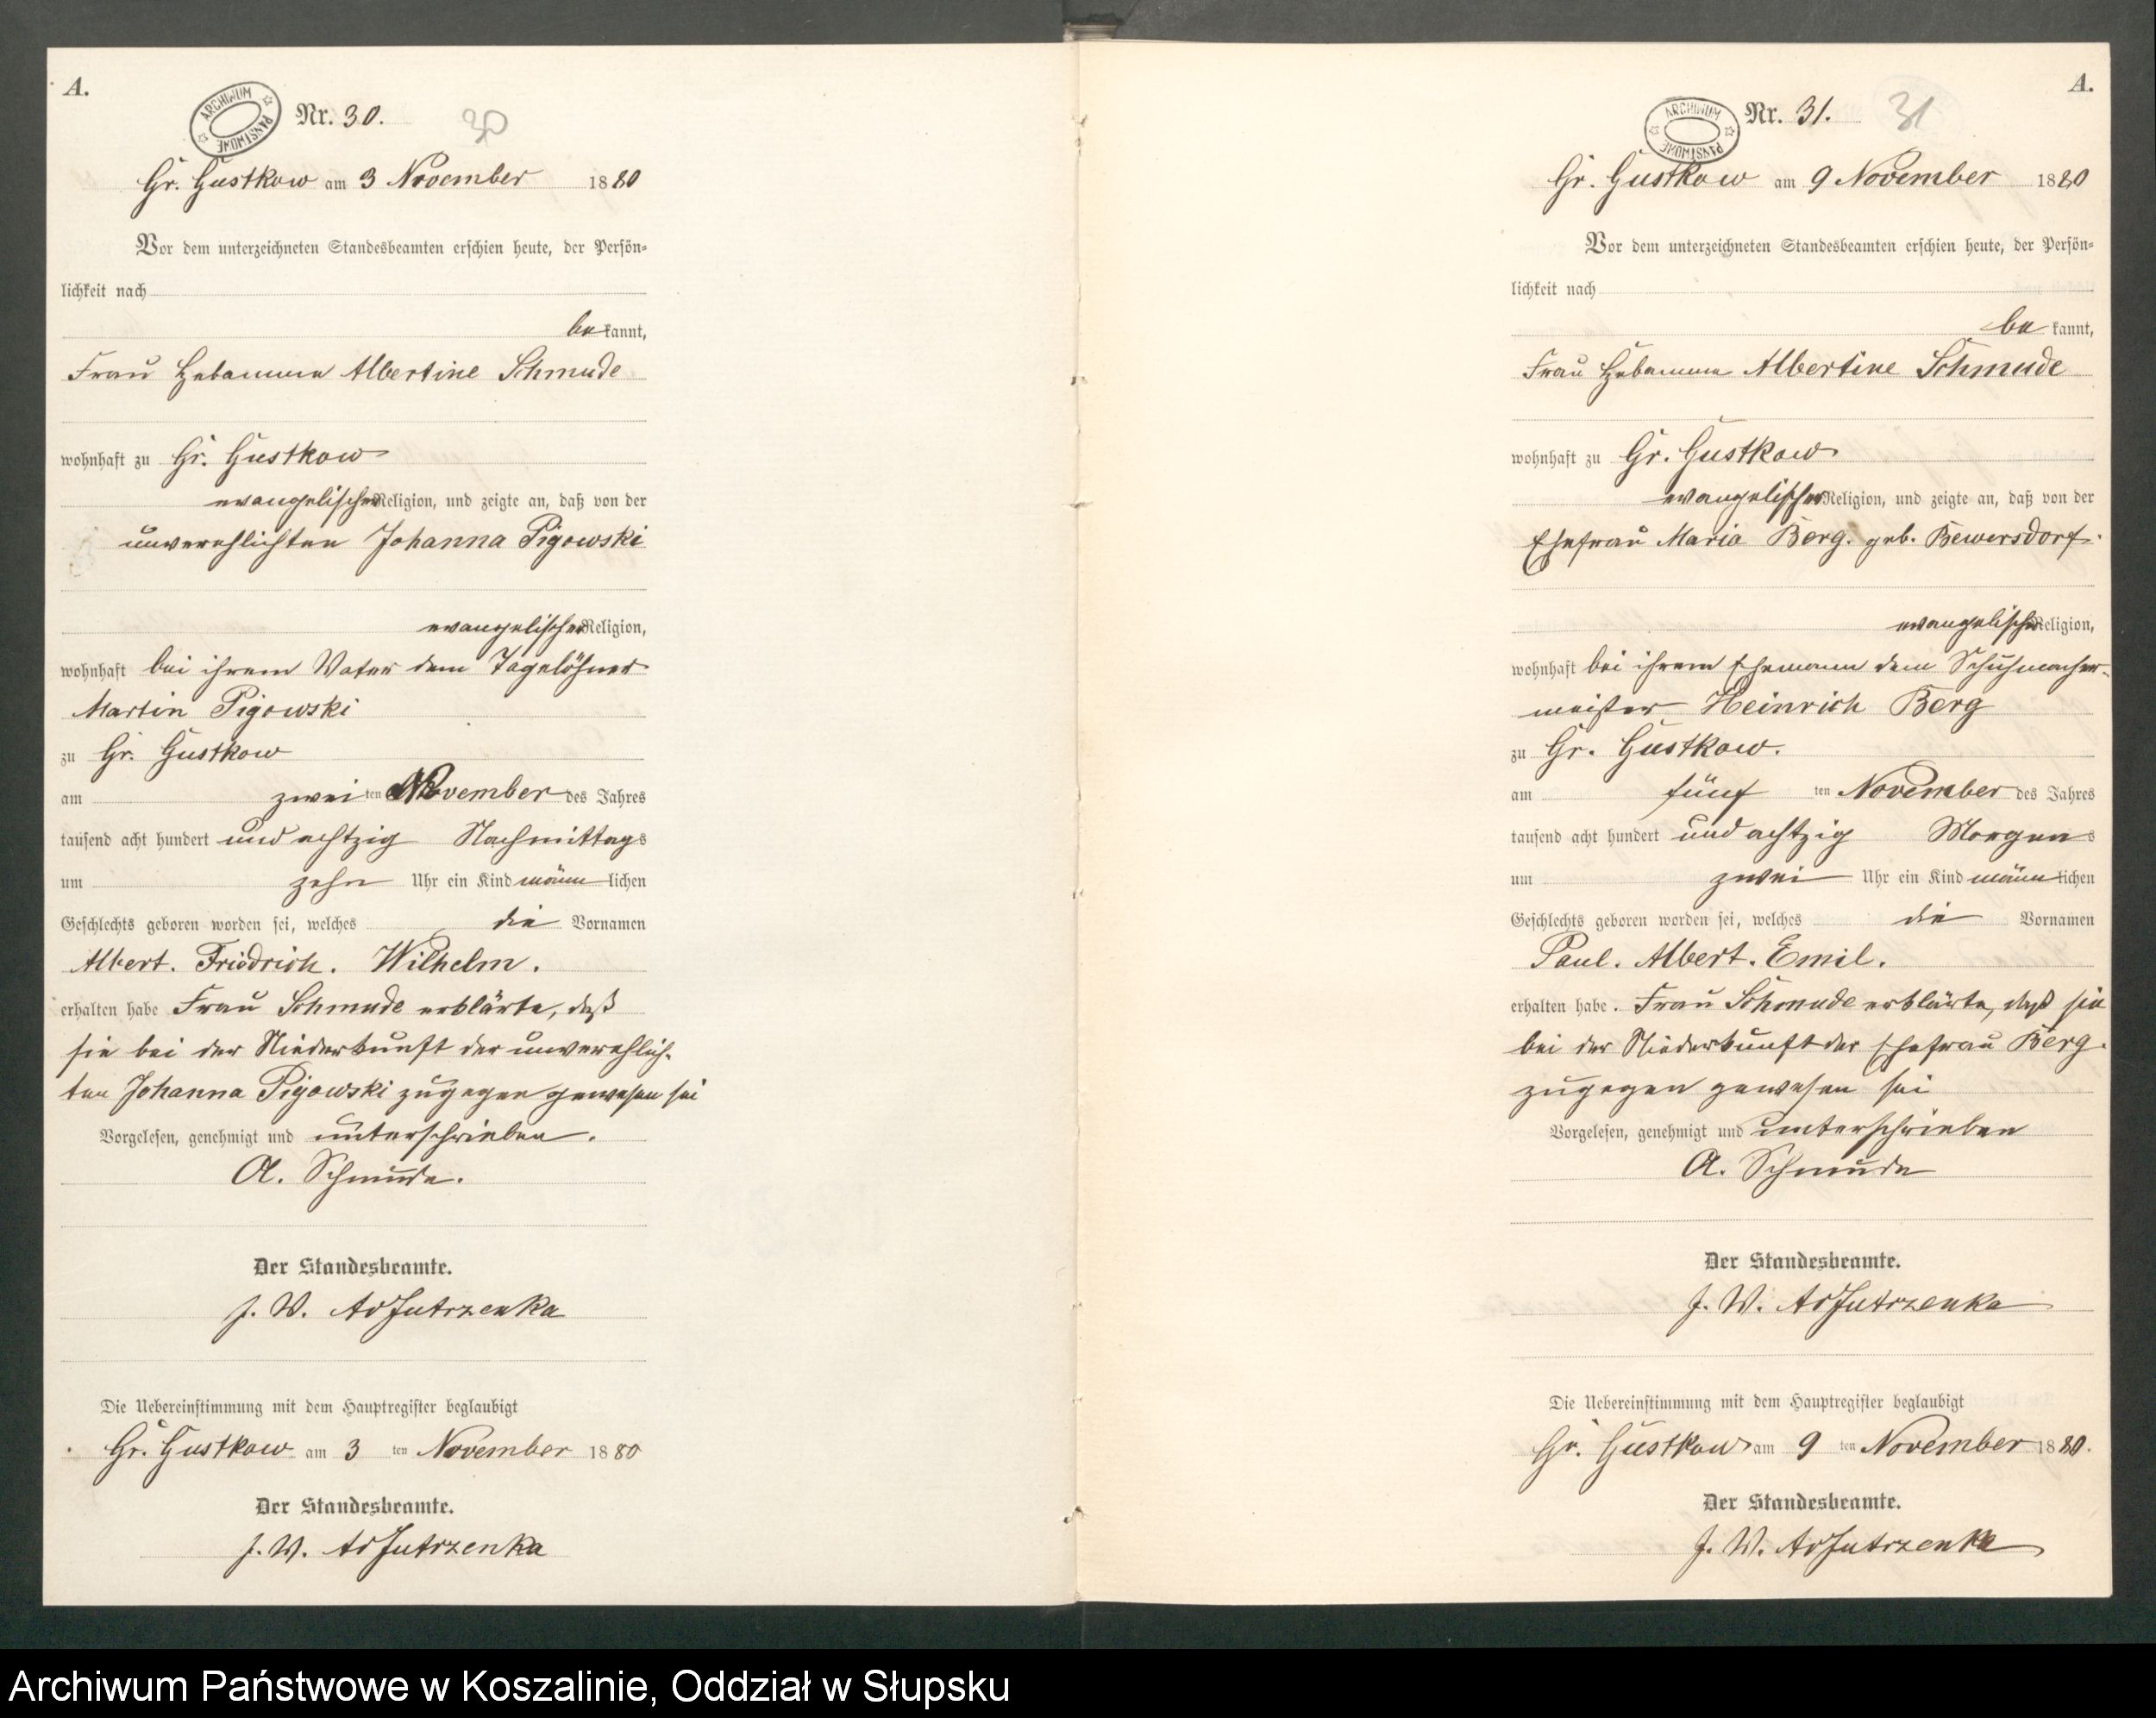 A.
ARCHIWUM PAŃSTWOWE
Nr. 30.
30
Gr. Gustkow am 3 November 1880
Vor dem unterzeichneten Standesbeamten erschien heute, der Persön-
lichkeit nach
bekannt,
Frau Hebamme Albertine Schmude
wohnhaft zu Gr. Gustkow
evangelischer Religion, und zeigte an, daß von der
unverehlichten Johanna Pigowski
evangelischer Religion,
wohnhaft bei ihrem Vater dem Tagelöhner
Martin Pigowski
zu Gr. Gustkow
am zweiten November des Jahres
tausend acht hundert und achtzig Nachmittags
um zehn Uhr ein Kind männlichen
Geschlechts geboren worden sei, welches die Vornamen
Albert. Friedrich. Wilhelm.
erhalten habe Frau Schmude erklärte, daß
sie bei der Niederkunft der unverehlich-
ten Johanna Pigowski zugegen gewesen sei
Vorgelesen, genehmigt und unterschrieben.
A. Schmude.
Der Standesbeamte.
J. W. Jutrzenka
Die Uebereinstimmung mit dem Hauptregister beglaubigt
Gr. Gustkow am 3 ten November 1880
Der Standesbeamte.
J. W. Jutrzenka
A.
ARCHIWUM PAŃSTWOWE
Nr. 31.
31
Gr. Gustkow am 9 November 1880
Vor dem unterzeichneten Standesbeamten erschien heute, der Persön-
lichkeit nach
bekannt,
Frau Hebamme Albertine Schmude
wohnhaft zu Gr. Gustkow
evangelischer Religion, und zeigte an, daß von der
Ehefrau Maria Berg. geb. Bewersdorf.
evangelischer Religion,
wohnhaft bei ihrem Ehemann dem Schuhmacher-
meister Heinrich Berg
zu Gr. Gustkow.
am fünf ten November des Jahres
tausend acht hundert und achtzig Morgens
um zwei Uhr ein Kind männlichen
Geschlechts geboren worden sei, welches die Vornamen
Paul. Albert. Emil.
erhalten habe. Frau Schmude erklärte, daß sie
bei der Niederkunft der Ehefrau Berg.
zugegen gewesen sei
Vorgelesen, genehmigt und unterschrieben
A. Schmude
Der Standesbeamte.
J. W. Jutrzenka
Die Uebereinstimmung mit dem Hauptregister beglaubigt
Gr. Gustkow am 9 ten November 1880.
Der Standesbeamte.
J. W. Jutrzenka
Archiwum Państwowe w Koszalinie, Oddział w Słupsku